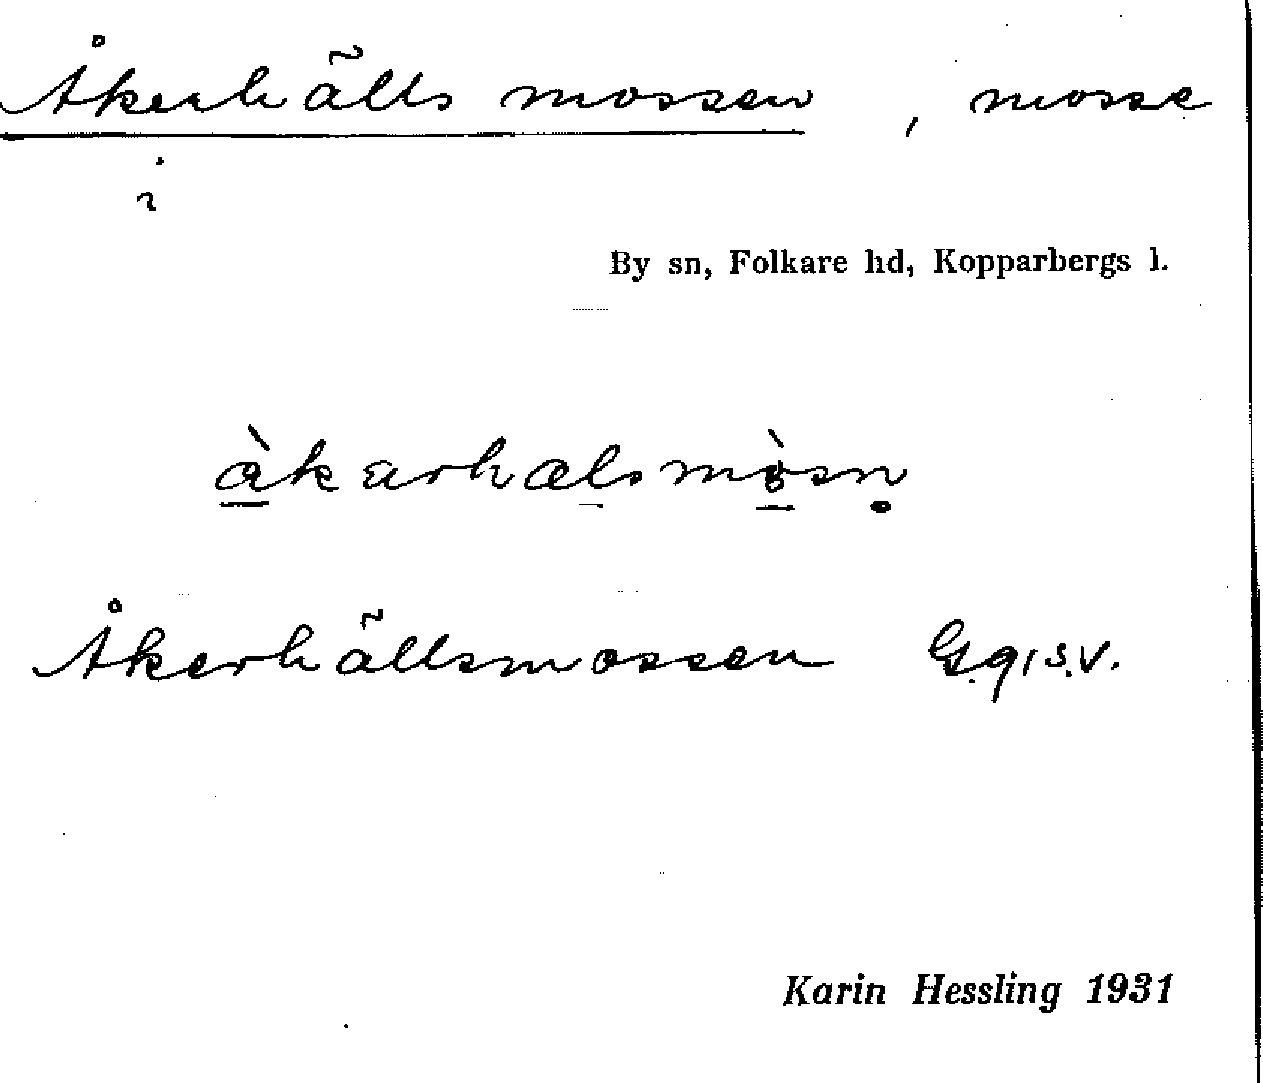 Åkerhällsmossen, mosse
i
By sn, Folkare hd, Kopparbergs l.
åkarhælsmòsn̥
Åkerhällsmossen G.q, s.v.
Karin Hessling 1931